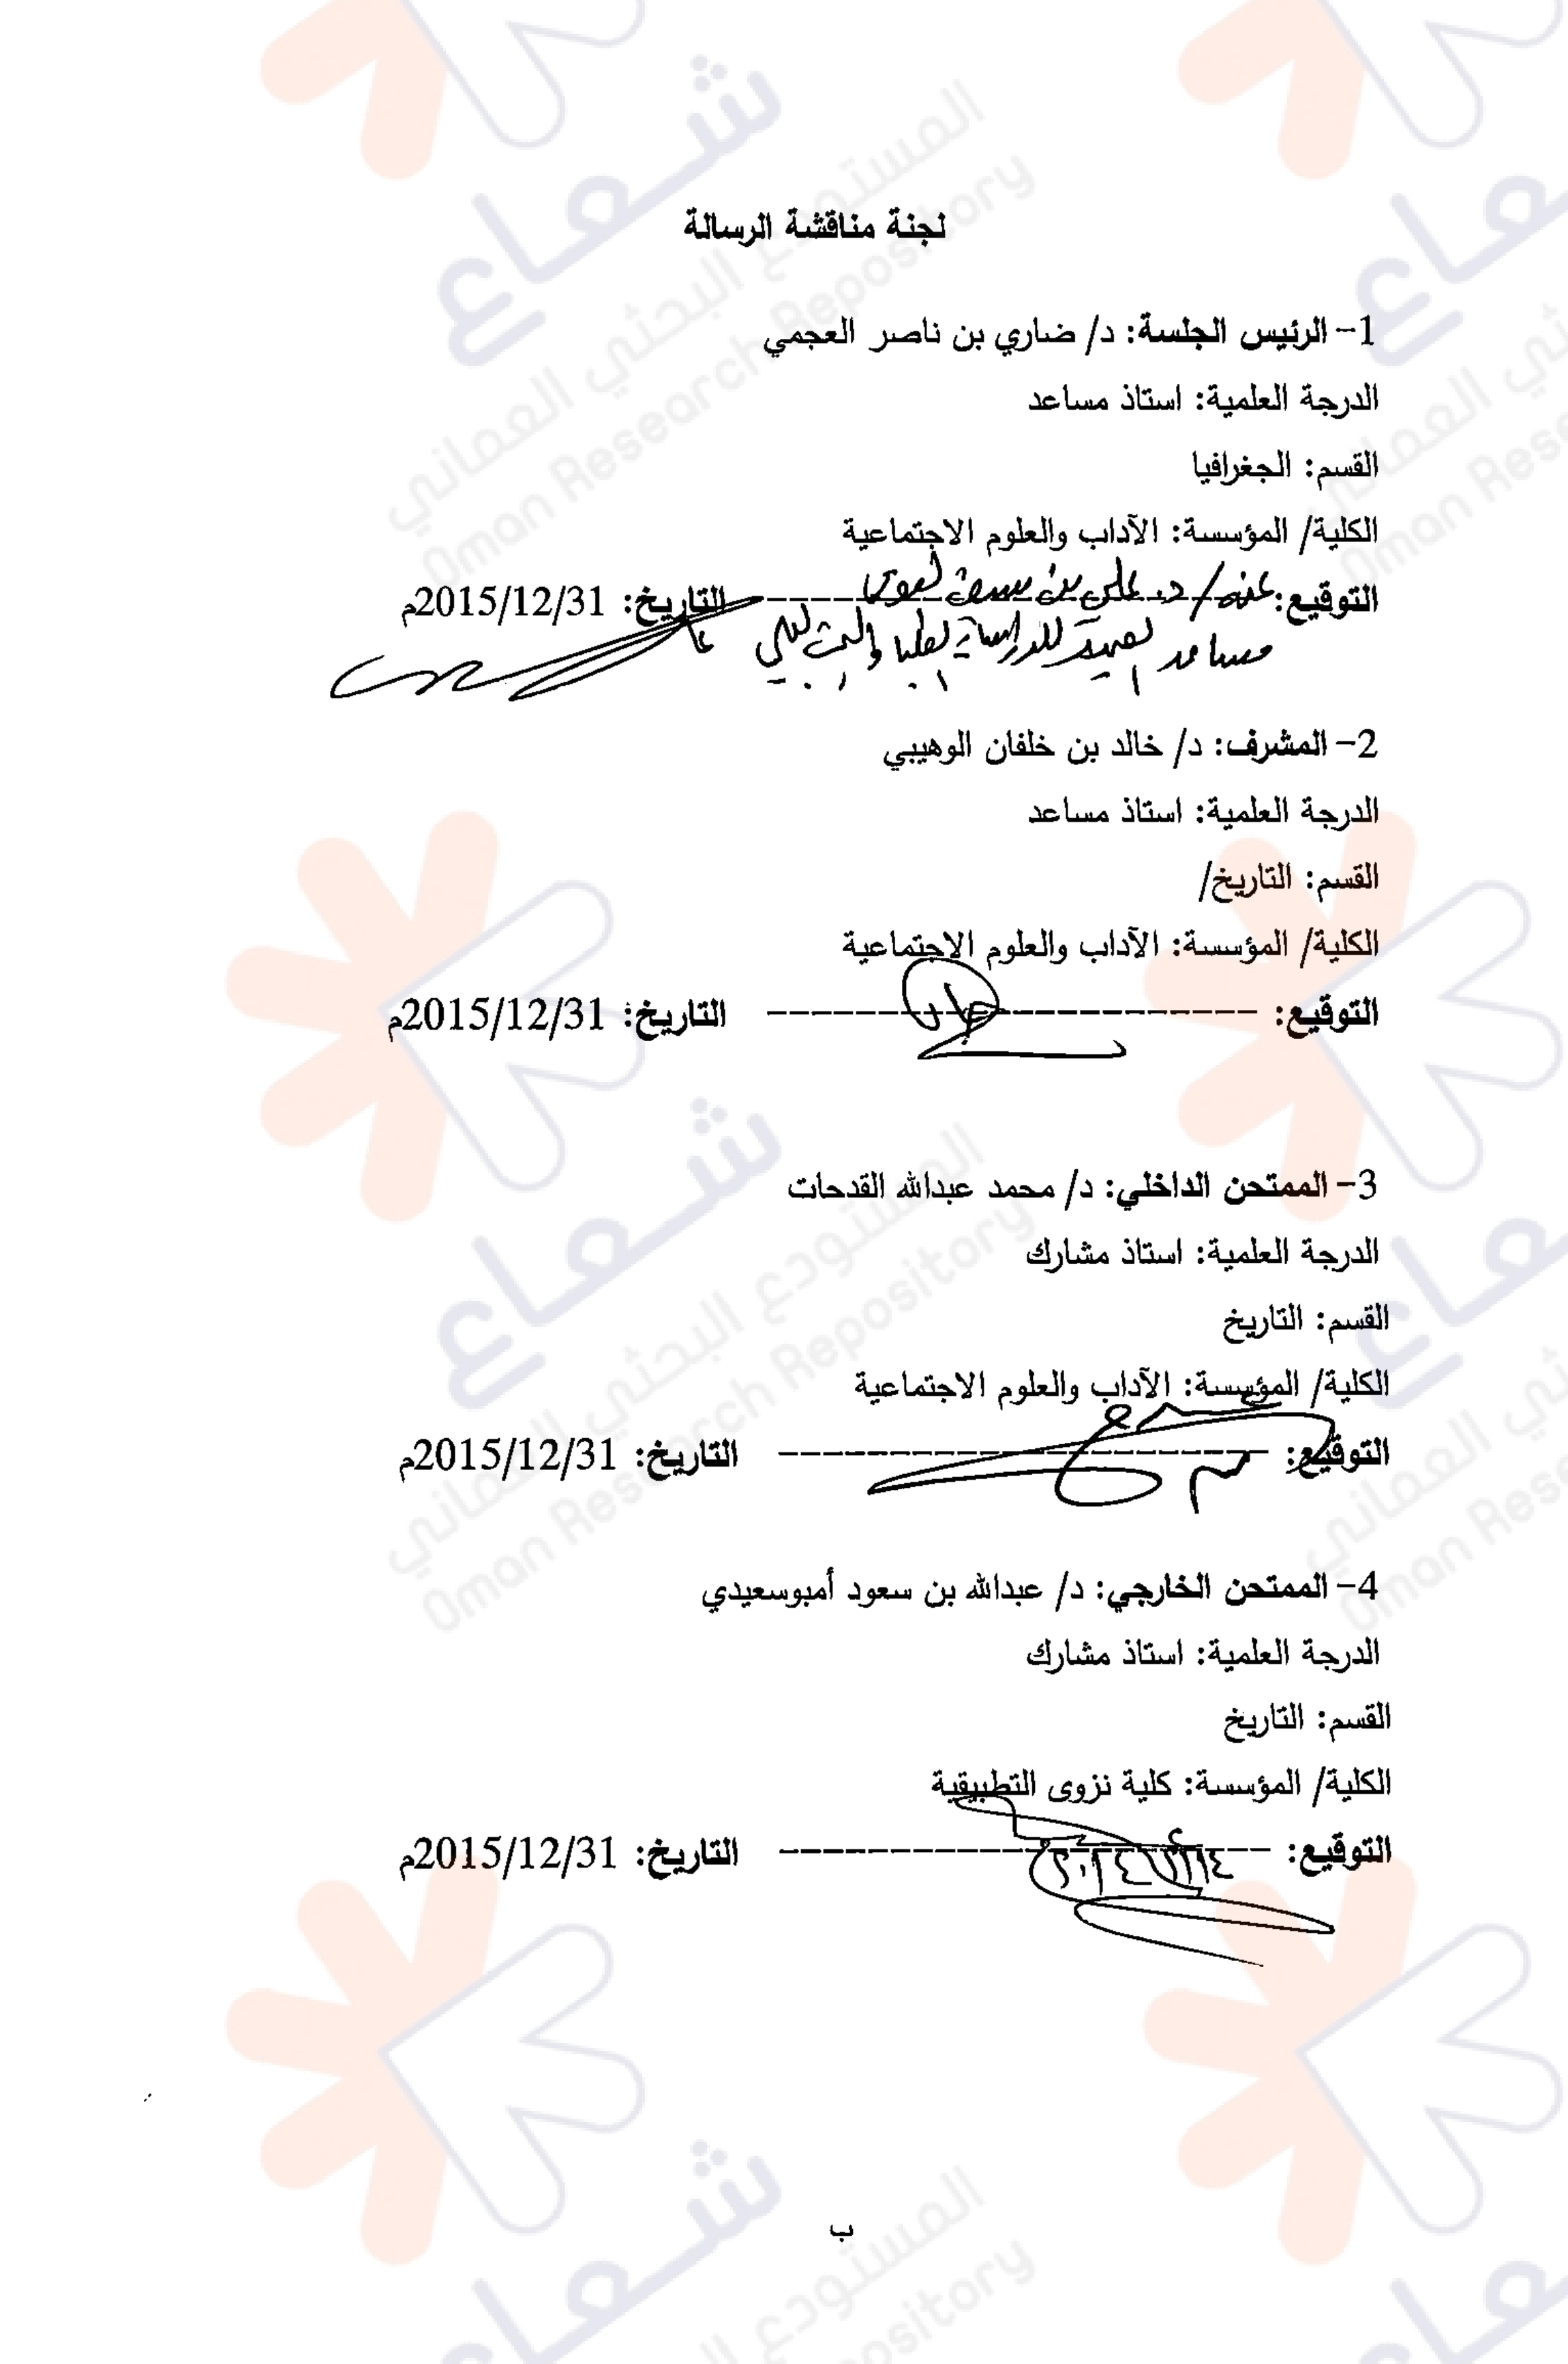 لجنة مناقشة الرسالة
1- الرئيس الجلسة: د/ ضاري بن ناصر العجمي
الدرجة العلمية: استاذ مساعد
القسم: الجغرافيا
الكلية/ المؤسسة: الآداب والعلوم الاجتماعية
التوقيع: عنه/ د. علي بن التاريخ: 2015/12/31م
مساعد العميد للدراسات العليا والبحث العلمي
2- المشرف: د/ خالد بن خلفان الوهيبي
الدرجة العلمية: استاذ مساعد
القسم: التاريخ/
الكلية/ المؤسسة: الآداب والعلوم الاجتماعية
التوقيع: ------------------------ التاريخ: 2015/12/31م
3- الممتحن الداخلي: د/ محمد عبدالله القدحات
الدرجة العلمية: استاذ مشارك
القسم: التاريخ
الكلية/ المؤسسة: الآداب والعلوم الاجتماعية
التوقيع: ------------------------ التاريخ: 2015/12/31م
4- الممتحن الخارجي: د/ عبدالله بن سعود أمبوسعيدي
الدرجة العلمية: استاذ مشارك
القسم: التاريخ
الكلية/ المؤسسة: كلية نزوى التطبيقية
التوقيع: ------------------------ التاريخ: 2015/12/31م
ب
شعاع
المستودع البحثي العماني
Oman Research Repository